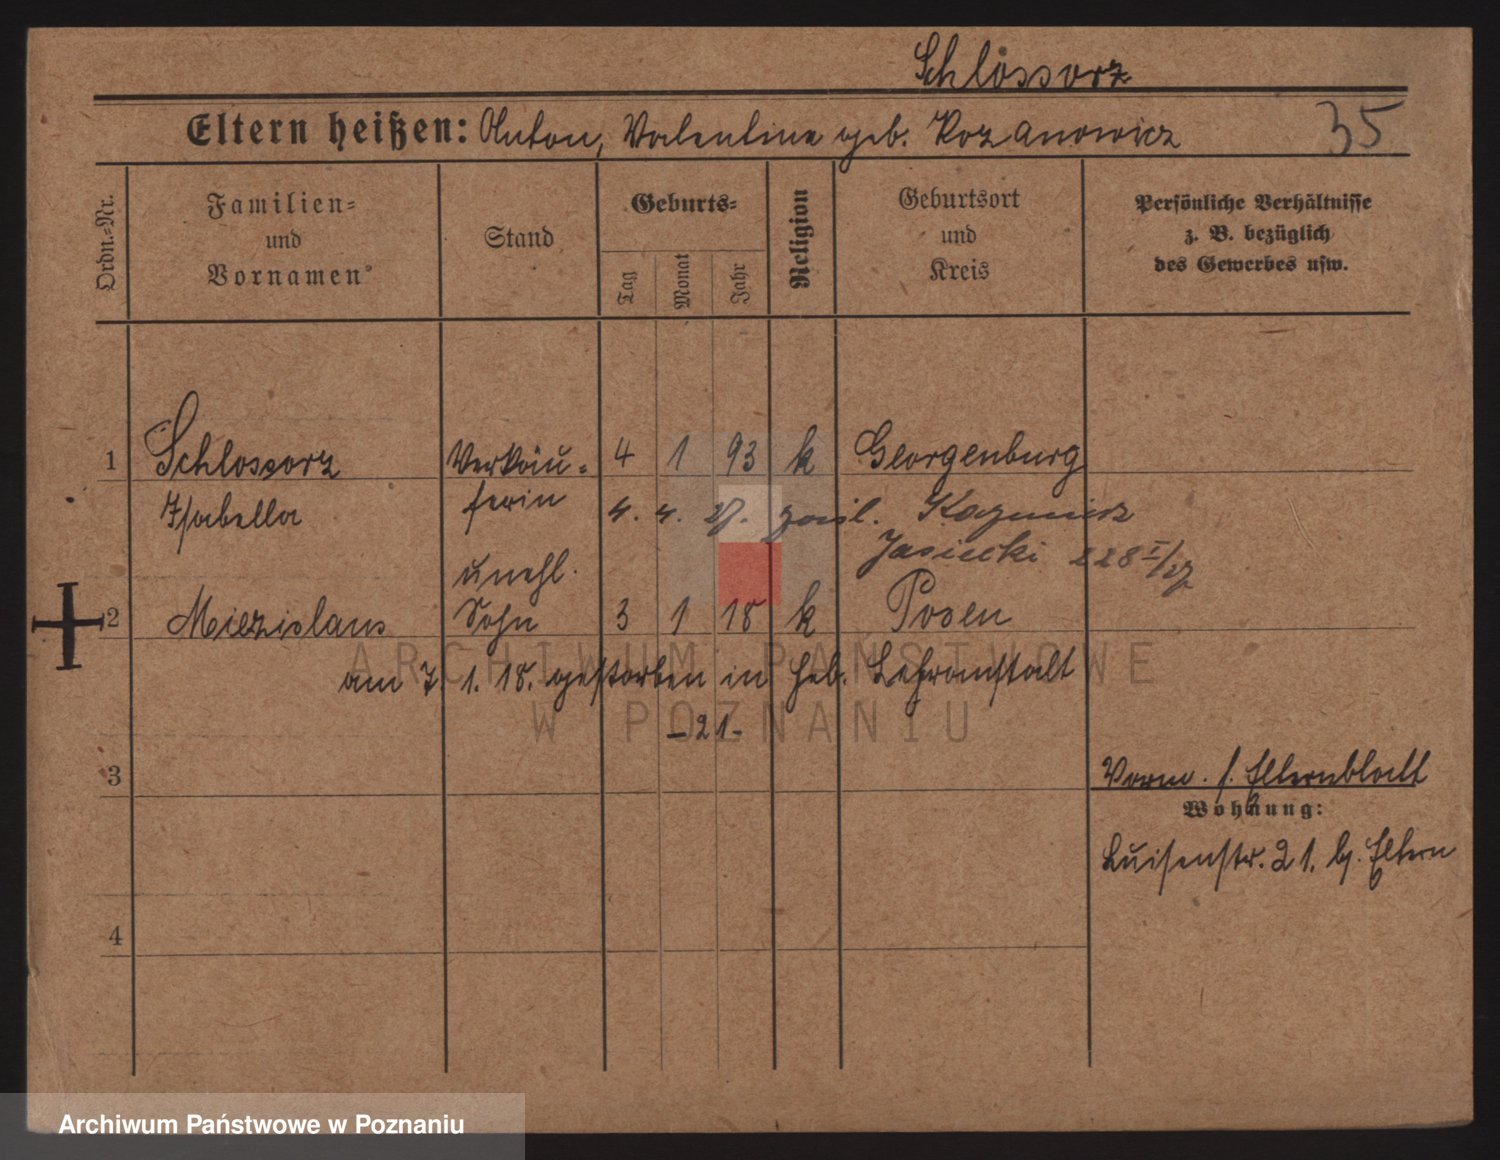 Schlossorz
Eltern heißen: Anton, Valentine geb. Kozanowicz
35
Ordn.-Nr.
Familien- und Vornamen
Stand
Geburts-
Tag Monat Jahr
Religion
Geburtsort und Kreis
Persönliche Verhältnisse z. B. bezüglich des Gewerbes usw.
1 Schlossorz Verkäu- 4 1 93 k Georgenburg
Isabella ferin 4. 4. 27. zaśl. Kazmierz
Jasiecki 228 I/27
unehl.
2 Miezislaus Sohn 3 1 18 k Posen
am 7 1. 18. gestorben in Heb. Lehranstalt
-21-
3
Vorm. s. Elternblatt
Wohnung:
Luisenstr. 21. b. Eltern
4
ARCHIWUM PAŃSTWOWE
W POZNANIU
Archiwum Państwowe w Poznaniu